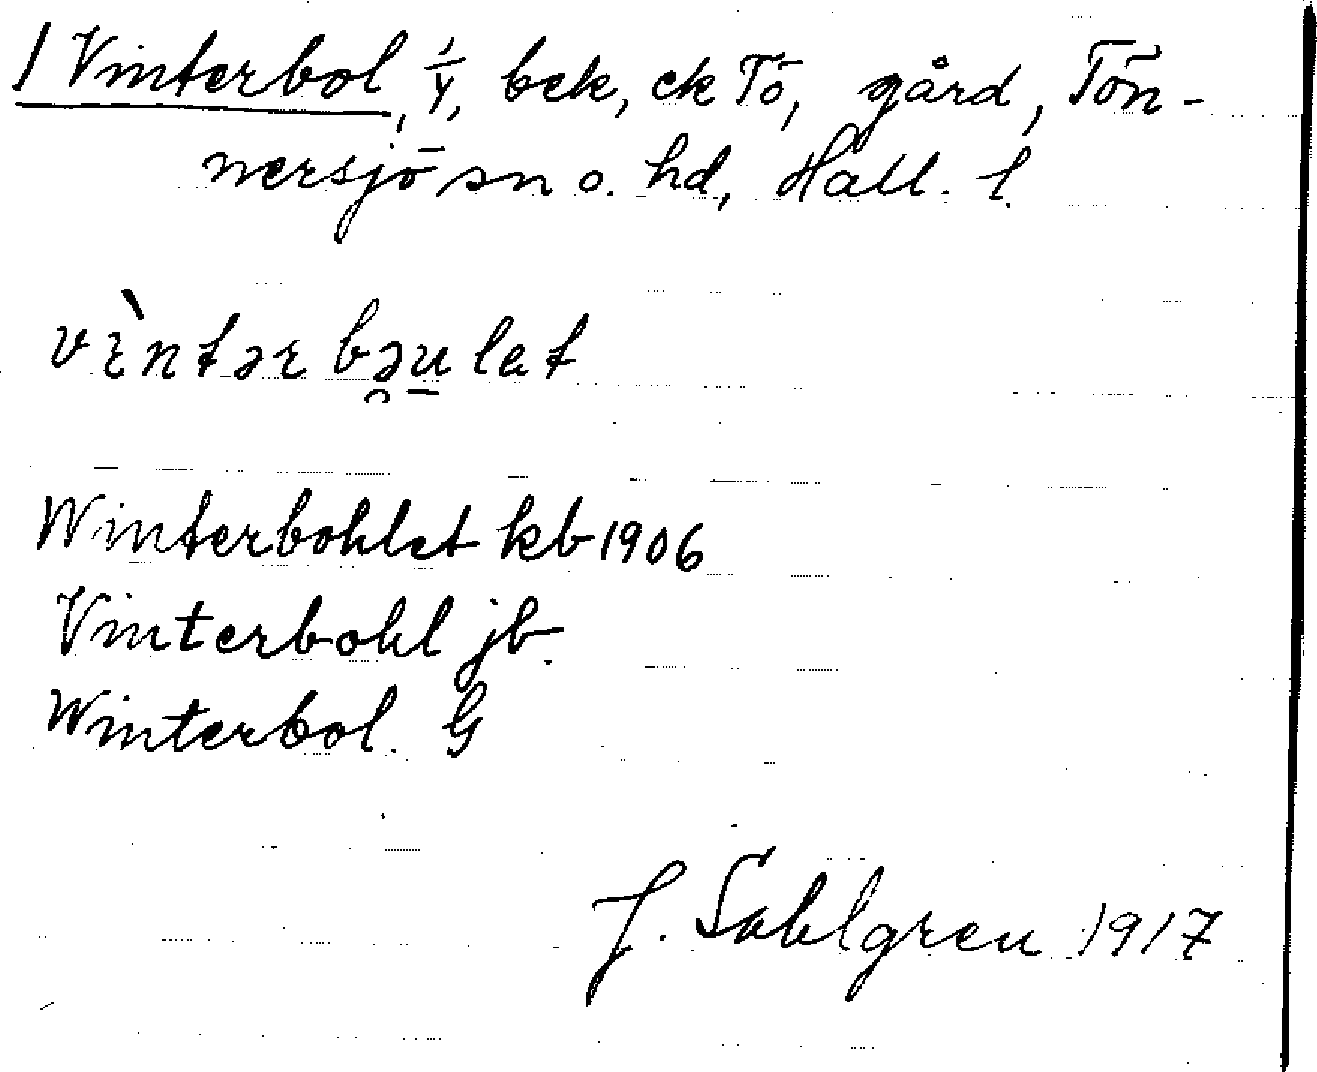 1 Vinterbol, 1/4, bek, ck Tö, gård, Tön-
nersjö sn o. hd, Hall. l.
vìntər bəulet
Winterbohlet kb 1906
Vinterbohl jb.
Winterbol. G
J. Sahlgren 1917